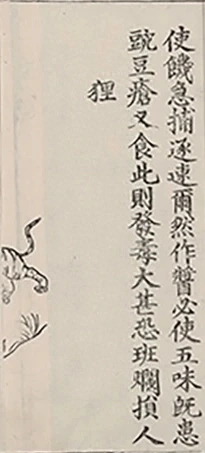 使饑急捕逐速爾然作醬必使五味旣患
豌豆瘡又食此則發毒大甚恐班爛損人
狸